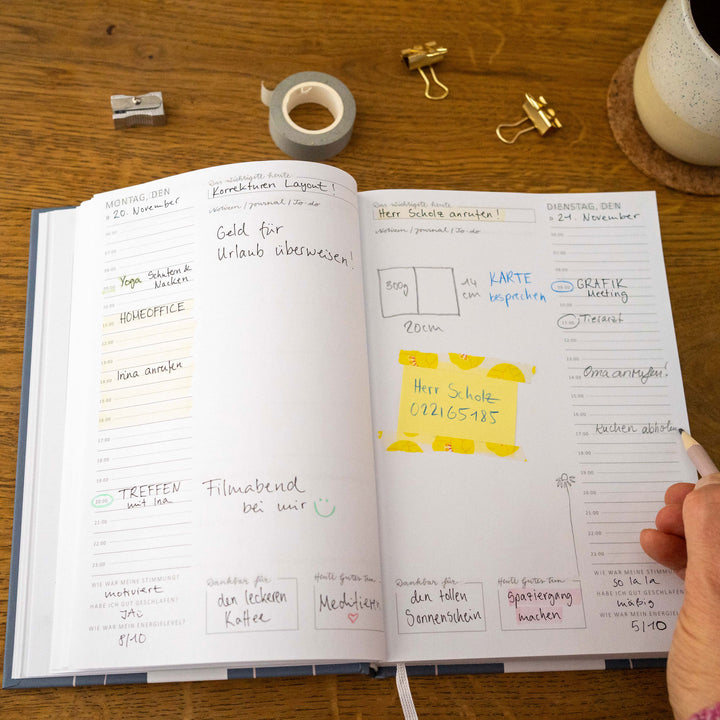 MONTAG, DEN
20. November
Das wichtigste heute
Korrekturen Layout!
Notizen / Journal / To-do
Geld für
Urlaub überweisen!
Yoga Schultern &
Nacken
HOMEOFFICE
Irina anrufen
17:00
18:00
19:00
20:00
TREFFEN
mit Ina
21:00
22:00
23:00
Filmabend
bei mir
WIE WAR MEINE STIMMUNG?
motiviert
HABE ICH GUT GESCHLAFEN?
JA
WIE WAR MEIN ENERGIELEVEL?
8/10
Dankbar für
den leckeren
Kaffee
Heute Gutes tun
Meditieren
Das wichtigste heute
Herr Scholz anrufen!
Notizen / Journal / To-do
300g
14
cm
20cm
KARTE
besprechen
Herr Scholz
022165185
DIENSTAG, DEN
21. November
GRAFIK
Meeting
Tierarzt
Oma anrufen!
Kuchen abholen
Dankbar für
den tollen
Sonnenschein
Heute Gutes tun
Spaziergang
machen
WIE WAR MEINE STIMMUNG?
so la la
HABE ICH GUT GESCHLAFEN?
mäßig
WIE WAR MEIN ENERGIELEVEL?
5/10